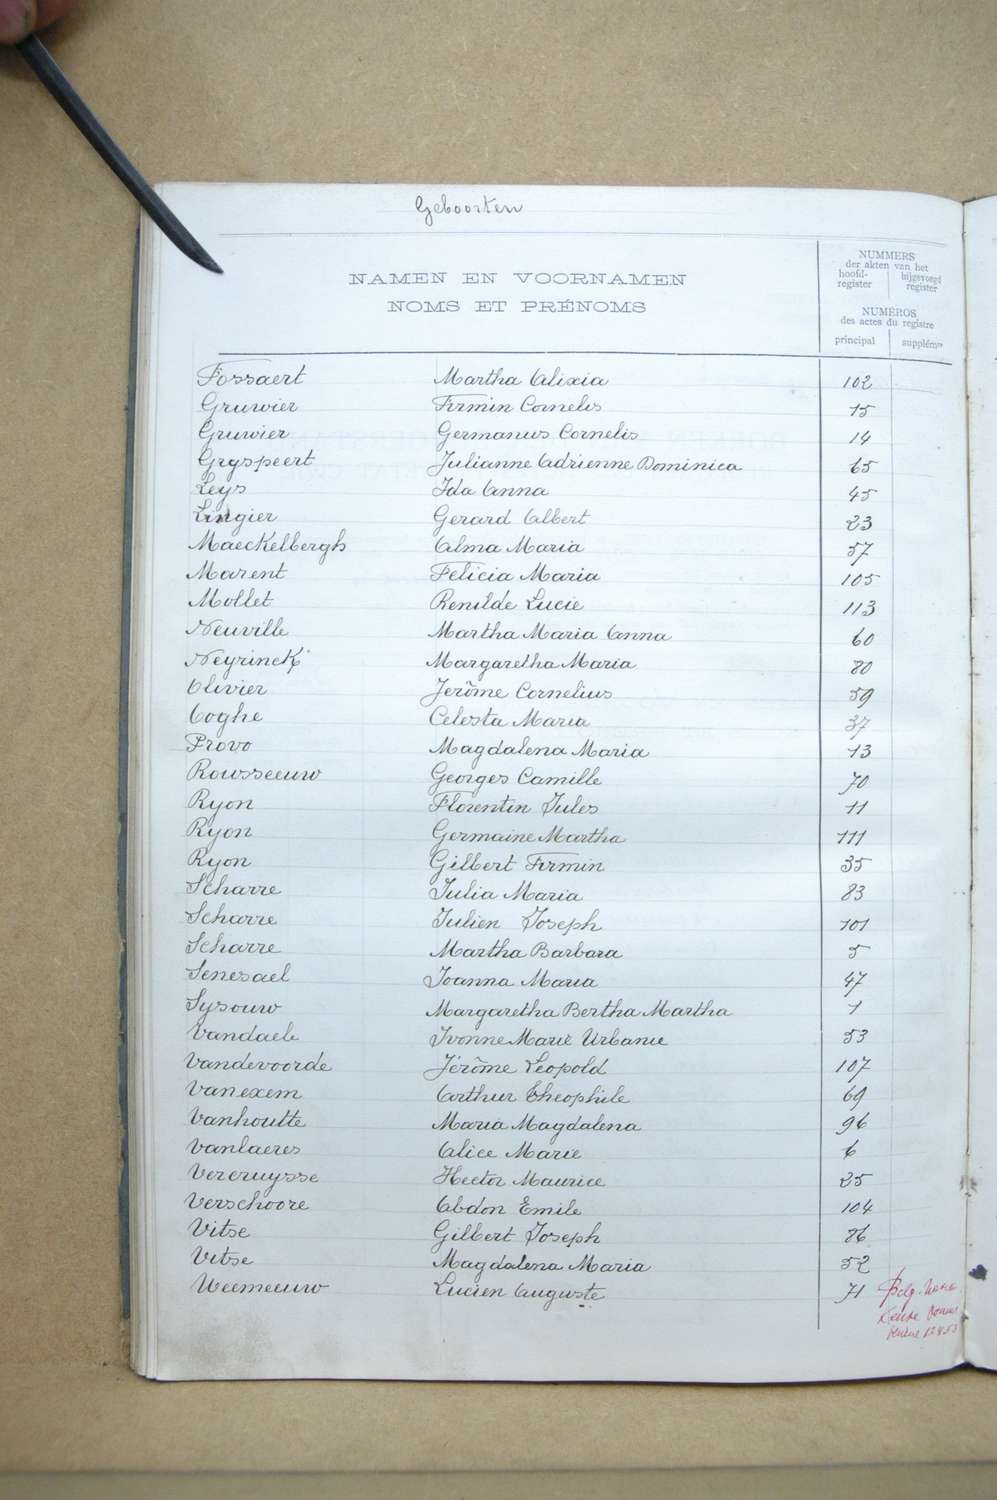 Geboorten
NAMEN EN VOORNAMEN
NOMS ET PRÉNOMS
NUMMERS
der akten van het
hoofd-register bijgevoegd register
NUMÉROS
des actes du registre
principal supplémre
Fossaert Martha Alixia 102
Gruwier Firmin Cornelis 15
Gruwier Germanus Cornelis 14
Gryspeert Julianne Adrienne Dominica 65
Leys Ida Anna 45
Lingier Gerard Albert 23
Maeckelbergh Alma Maria 57
Marent Felicia Maria 105
Mollet Renilde Lucie 113
Neuville Martha Maria Anna 60
Neyrinck Margaretha Maria 80
Olivier Jerôme Cornelius 59
Ooghe Celesta Maria 37
Provo Magdalena Maria 13
Rousseeuw Georges Camille 70
Ryon Florentin Jules 11
Ryon Germaine Martha 111
Ryon Gilbert Firmin 35
Scharre Julia Maria 83
Scharre Julien Joseph 101
Scharre Martha Barbara 5
Senesael Joanna Maria 47
Sysouw Margaretha Bertha Martha 1
Vandaele Ivonne Marie Urbanie 53
Vandevoorde Jérôme Leopold 107
Vanexem Arthur Theophile 69
Vanhoutte Maria Magdalena 96
Vanlaeres Alice Marie 6
Vercruysse Hector Maurice 25
Verschoore Abdon Emile 104
Vitse Gilbert Joseph 86
Vitse Magdalena Maria 52
Weemeeuw Lucien Auguste 71